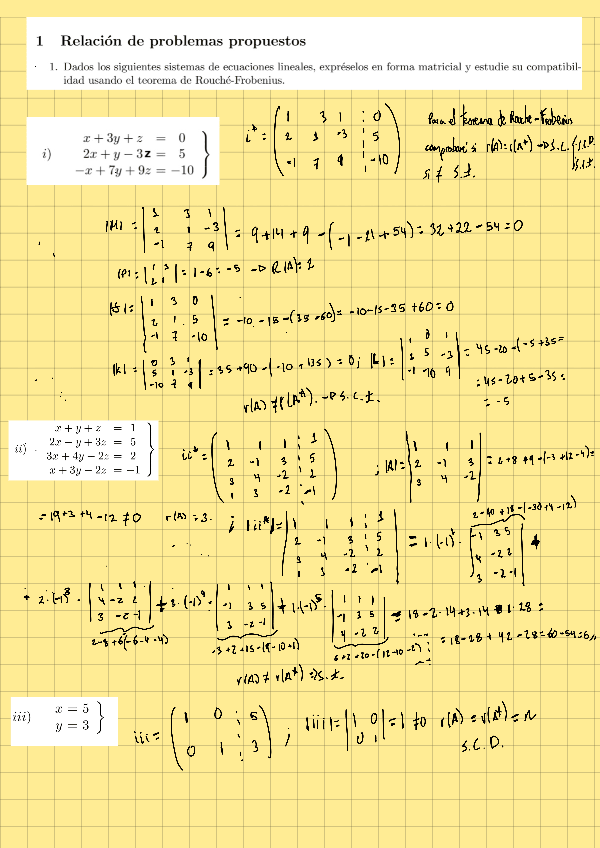 1 Relación de problemas propuestos
1. Dados los siguientes sistemas de ecuaciones lineales, expréselos en forma matricial y estudie su compatibil-
idad usando el teorema de Rouché-Frobenius.
i) x + 3y + z = 0
2x + y − 3z = 5
−x + 7y + 9z = −10
i* = ( 1 3 1 : 0
2 1 -3 : 5
-1 7 9 : -10 )
Para el teorema de Rouche-Frobenius
comprobaré si r(A) = r(A*) → S.C. { S.C.D.
S.C.I.
si ≠ S.I.
= | 1 3 1
2 1 -3
-1 7 9 | = 9+14+9 - (-1-21+54) = 32+22-54 = 0
| 1 3
2 1 | = 1-6 = -5 → R(A): 2
| 1 3 0
2 1 5
-1 7 -10 | = -10-15-(35-60) = -10-15-35+60 = 0
|K| = | 0 3 1
5 1 -3
-10 7 9 | = 35+90-(-10+135) = 0; |L| = | 1 0 1
2 5 -3
-1 -10 9 | = 45-20-(-5+35=
= 45-20+5-35=
= -5
ii) x + y + z = 1
2x − y + 3z = 5
3x + 4y − 2z = 2
x + 3y − 2z = −1
ii* = ( 1 1 1 : 1
2 -1 3 : 5
3 4 -2 : 2
1 3 -2 : -1 )
; |A| = | 1 1 1
2 -1 3
3 4 -2 | = 2+8+9-(-3+12-4)=
= 19+3+4-12 ≠ 0 r(A) = 3. ; |ii*| = | 1 1 1 : 1
2 -1 3 : 5
3 4 -2 : 2
1 3 -2 : -1 |
= 1·(-1) · | -1 3 5
4 -2 2
3 -2 -1 | +
+ 2·(-1) · | 1 1 1
4 -2 2
3 -2 -1 | + 3·(-1) · | 1 1 1
-1 3 5
3 -2 -1 | + 1·(-1) · | 1 1 1
-1 3 5
4 -2 2 | = 18-2·14+3·14 1·28 =
2-8+6(-6-4-4)
= 18-28+42-28=60-54=6,,
r(A) ≠ r(A*) ⇒ S.I.
iii) x = 5
y = 3
iii = ( 1 0 : 5
0 1 : 3 ) ; |iii| = | 1 0
0 1 | = 1 ≠ 0 r(A) = r(A*) = n
S.C.D.